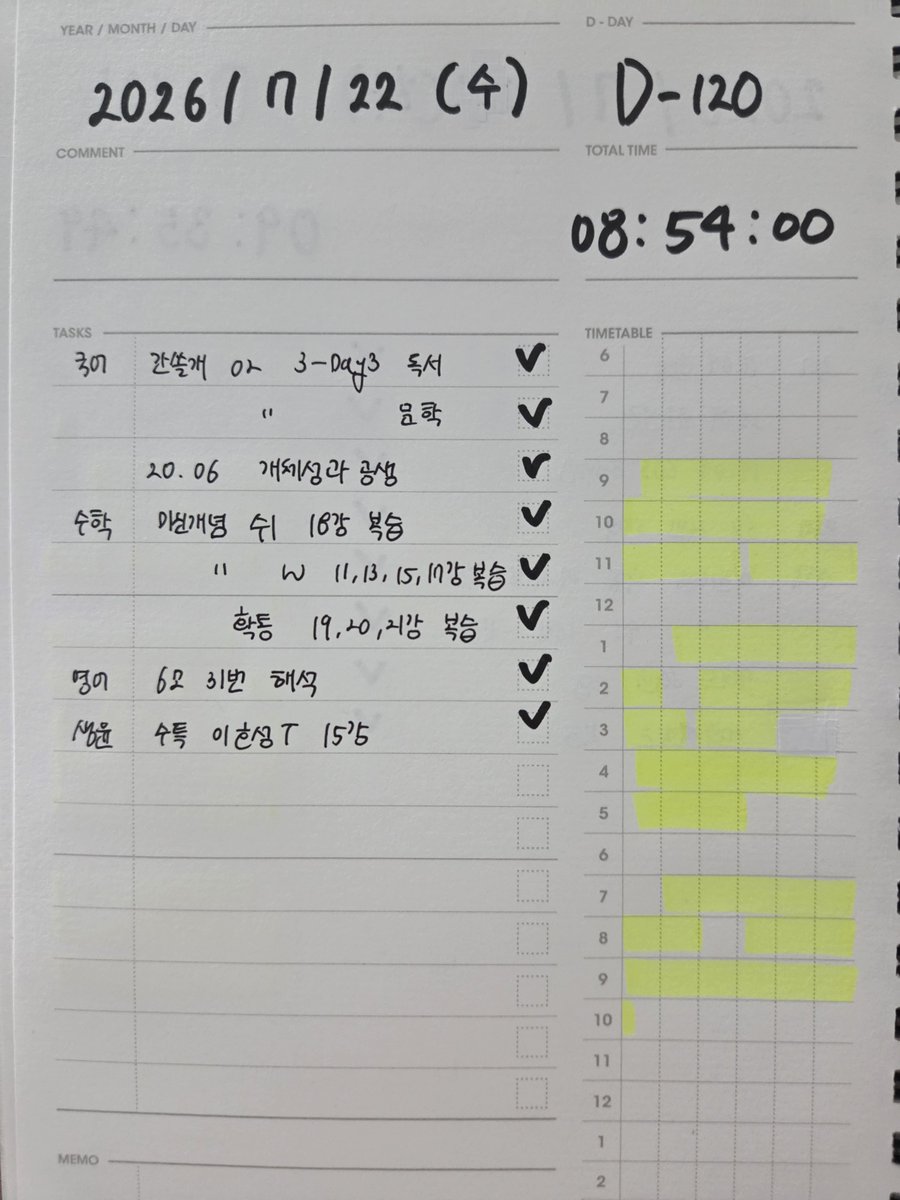 YEAR / MONTH / DAY
D - DAY
2026/7/22 (수)
D-120
COMMENT
TOTAL TIME
08:54:00
TASKS
국어 간쓸개 02 3-Day3 독서
" 문학
20.06 개체성과 공생
수학 미친개념 수1 18강 복습
" W 11,13,15,17강 복습
확통 19,20,21강 복습
영어 6모 31번 해석
생윤 수특 이한성T
TIMETABLE
6
7
8
9
10
11
12
1
2
3
4
5
6
7
8
9
10
11
12
1
2
MEMO